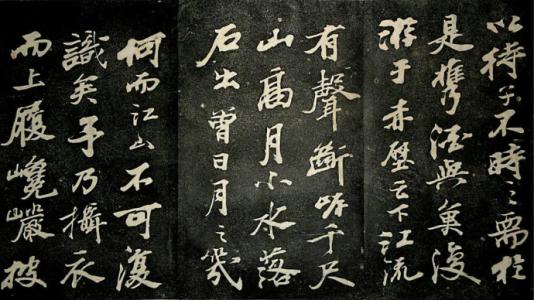 以待子不時之需於
是攜酒與魚復
游于赤壁之下江流
有聲斷岸千尺
山高月小水落
石出曾日月之幾
何而江山不可復
識矣予乃攝衣
而上履巉巖披